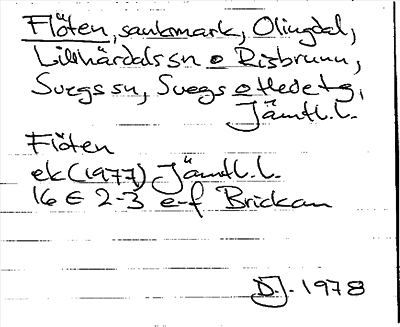 Flöten, sankmark, Olingdal,
Lillhärdals sn o Risbrunn,
Svegs sn, Svegs o Hede tg,
Jämtl.l.
Flöten
ek (1977) Jämtl.l.
16 E 2-3 e-f Brickan
D.J. 1978